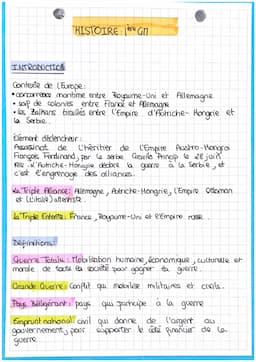 HISTOIRE : 1ère GM
INTRODUCTION
Contexte de l'Europe:
• concurrence maritime entre Royaume-Uni et Allemagne
• soif de colonies entre France et Allemagne
• les Balkans tiraillés entre l'Empire d'Autriche-Hongrie et
la Serbie.
Elément déclencheur:
Assassinat de l'Héritier de l'Empire Austro-Hongrois
François Ferdinand, par le serbe Gavrilo Princip le 28 juin
L'Autriche-Hongrie déclare la guerre à la Serbie, et
c'est l'engrenage des alliances.
La Triple Alliance: Allemagne, Autriche-Hongrie, l'Empire Ottoman
et (l'Italie)
La Triple Entente: France, Royaume-Uni et l'Empire russe
Définitions:
Guerre Totale: Mobilisation humaine, économique, culturelle et
morale de toute la société pour gagner la guerre.
Grande Guerre: Conflit qui mobilise militaires et civils.
Pays Belligérant: pays qui participe à la guerre
Emprunt national: civil qui donne de l'argent au
gouvernement, pour supporter le côté financier de la
guerre.